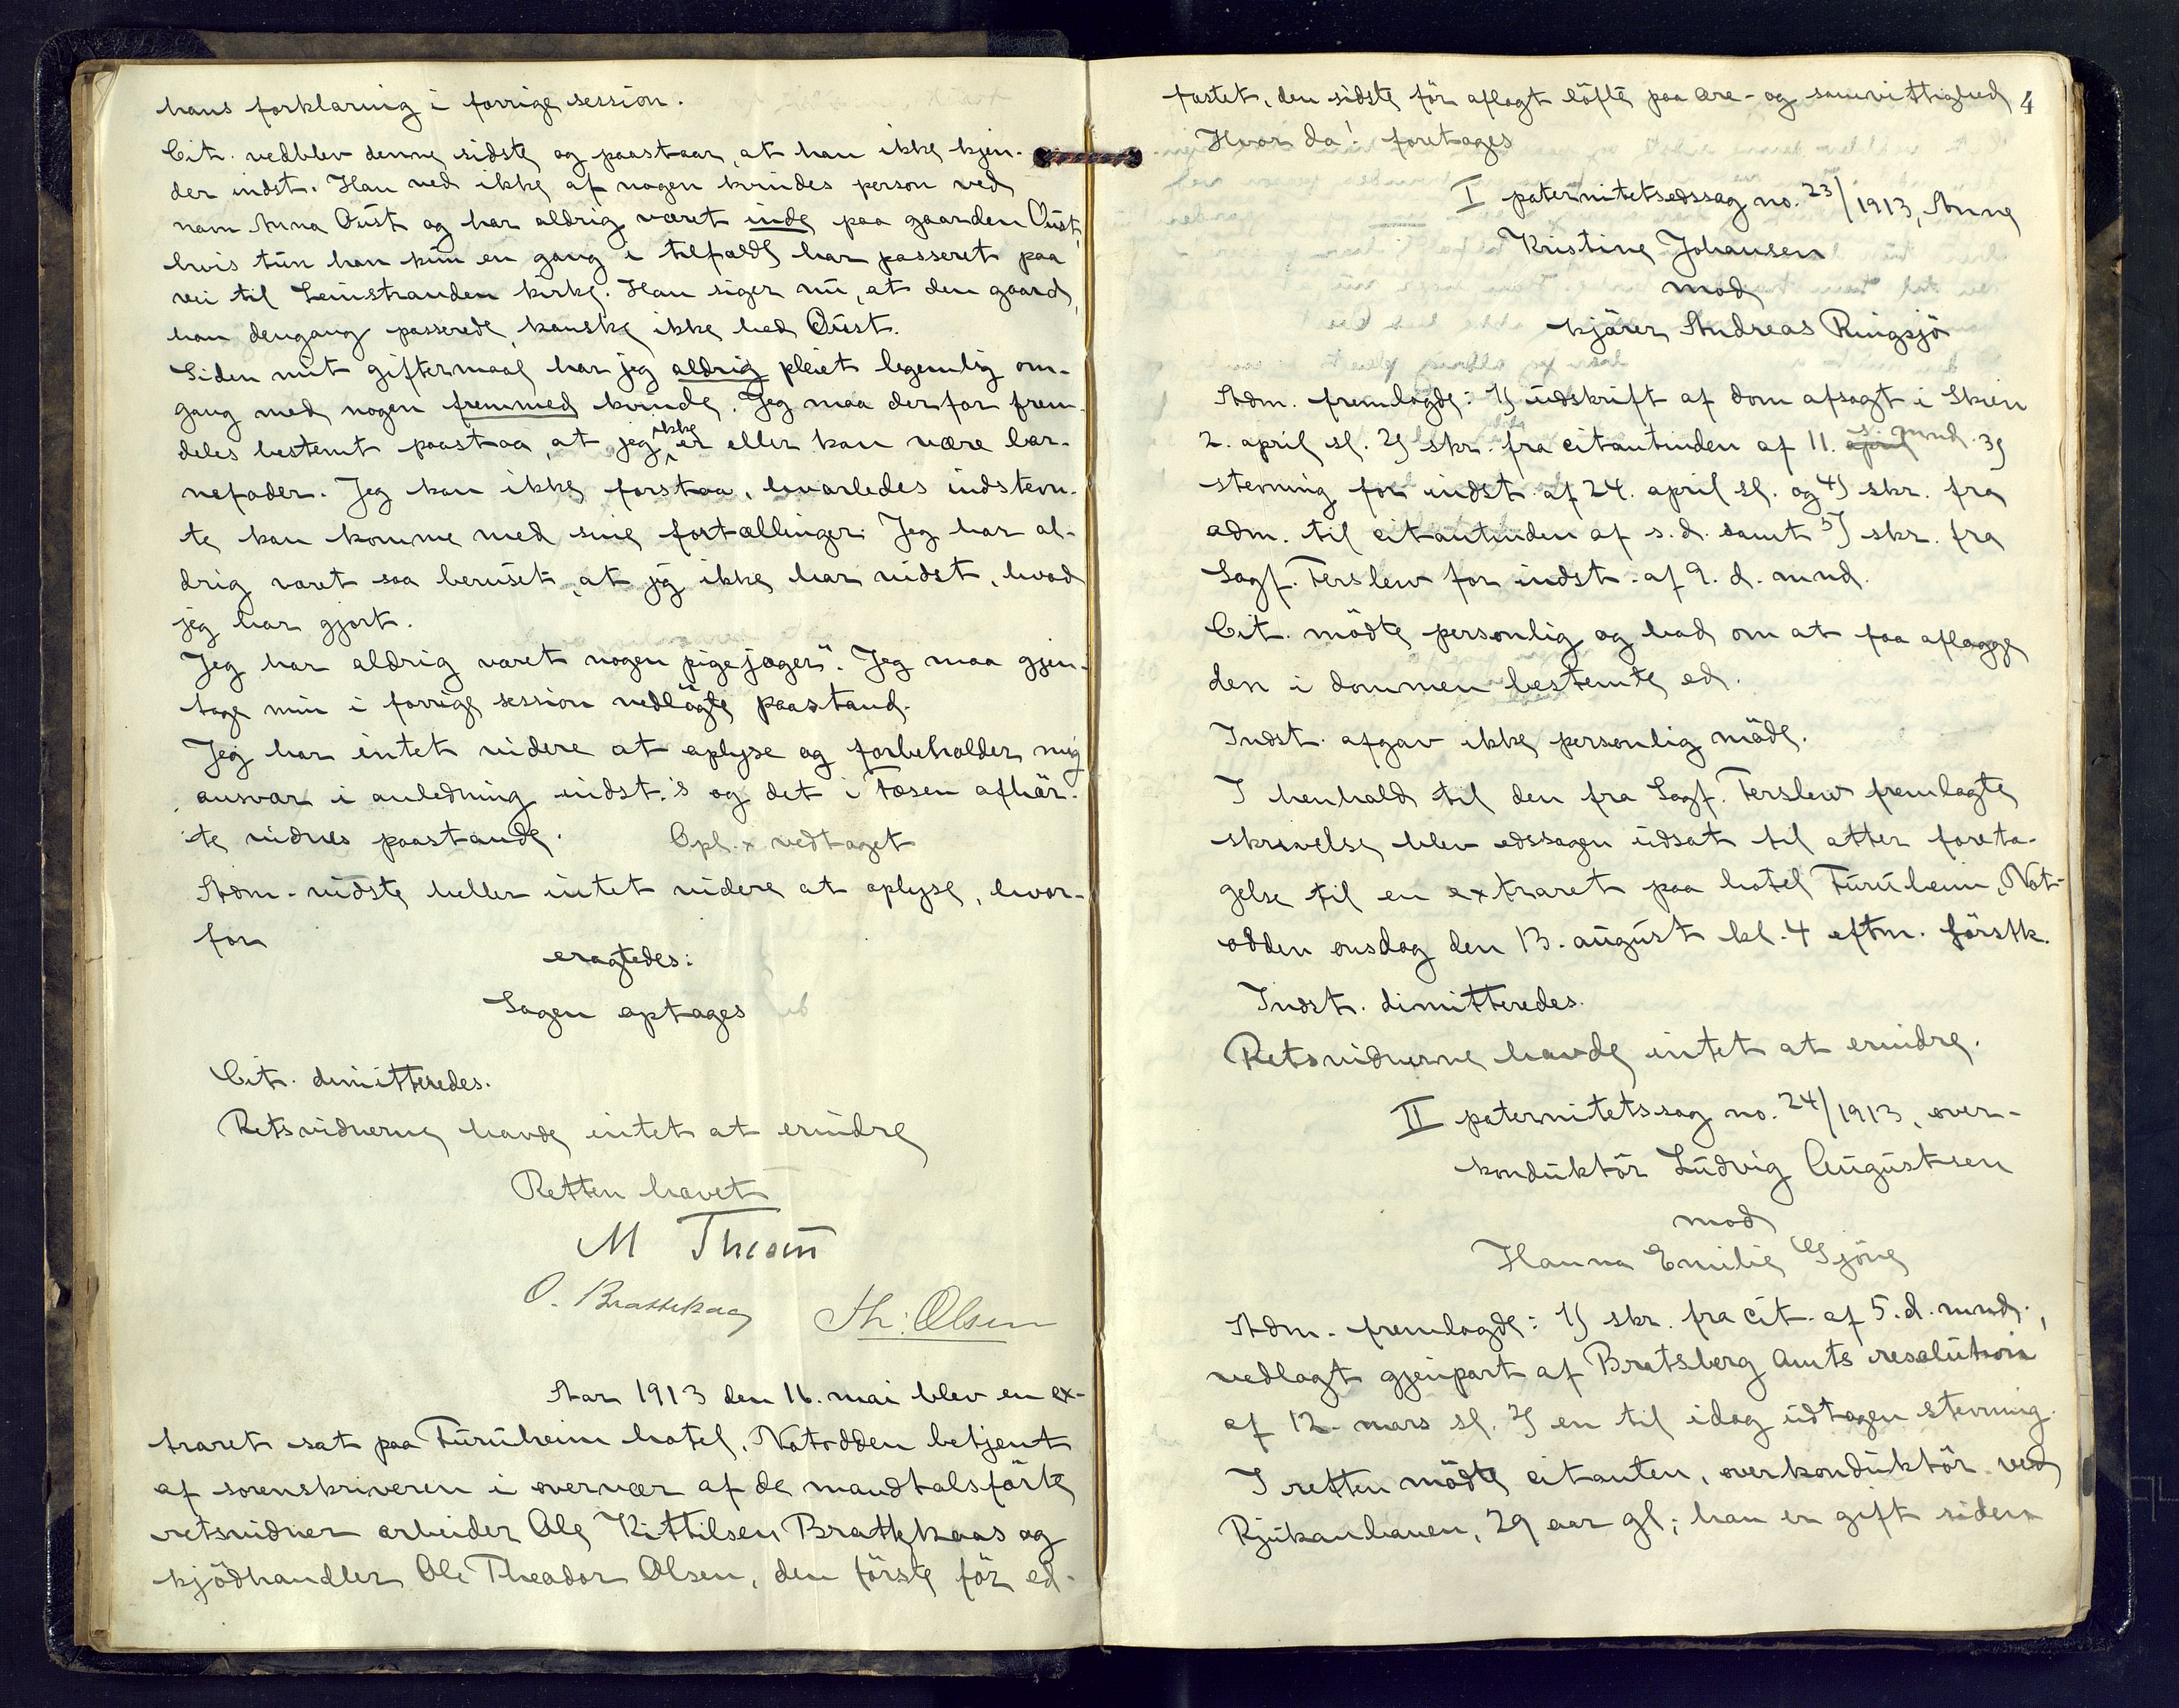 hans forklaring i forrige session.
Cit. vedblev denne sidste og paastaar, at han ikke kjen-
der indst. Han ved ikke af nogen kvindes person ved
navn Anna Øust og har aldrig været inde paa gaarden Øust,
hvis tun han kun en gang i tilfælde har passeret paa
vei til Leinstranden kirke. Han siger nu, at den gaard,
han dengang passerede, kanske ikke hed Øust.
Siden mit giftermaal har jeg aldrig pleiet legemlig om-
gang med nogen fremmed kvinde. Jeg maa derfor frem-
deles bestemt paastaa, at jeg ikke er eller kan være bar-
nefader. Jeg kan ikke forstaa, hvorledes indstevn-
te kan komme med sine fortællinger. Jeg har al-
drig været saa beruset, at jeg ikke har vidst, hvad
jeg har gjort.
Jeg har aldrig været nogen "pigejæger". Jeg maa gjen-
tage min i forrige session nedlagte paastand.
Jeg har intet videre at oplyse og forbeholder mig
ansvar i anledning indst.'s og det i Tosen afhør-
te vidnes paastande. Opl. x vedtaget
Adm. vidste heller intet videre at oplyse, hvor-
for
eragtedes:
Sagen optages
Cit. dimitteredes.
Retsvidnerne havde intet at erindre
Retten hævet
M Thesen
O. Brattekaas Th: Olsen
Aar 1913 den 16. mai blev en ex-
traret sat paa Furuheim hotel, Notodden betjent
af sorenskriveren i overvær af de mandtalsførte
retsvidner arbeider Ole Kittilsen Brattekaas og
kjødhandler Ole Theodor Olsen, den første før ed-
fæstet, den sidste før aflagt løfte paa ære- og samvittighed 4
Hvor da! foretages
I paternitetsedssag no. 23/1913, Anne
Kristine Johansen
mod
kjører Andreas Ringsjø
Adm. fremlagde: 1) udskrift af dom afsagt i Skien
2. april sl. 2) skr. fra citantinden af 11. april s. mnd. 3)
stevning for indst. af 24. april sl. og 4) skr. fra
adm. til citantinden af s.d. samt 5) skr. fra
Sagf. Terslew for indst. af 9. d. mnd.
Cit. mødte personlig og bad om at faa aflægge
den i dommen bestemte ed.
Indst. afgav ikke personlig møde.
I henhold til den fra Sagf. Terslew fremlagte
skrivelse blev edssagen udsat til atter foreta-
gelse til en extraret paa hotel Furuheim, Not-
odden onsdag den 13. august kl. 4 eftm. førstk.
Indst. dimitteredes.
Retsvidnerne havde intet at erindre.
II paternitetssag no. 24/1913, over-
konduktør Ludvig Augustsen
mod
Hanna Emilie Gjøne
Adm. fremlagde: 1) skr. fra cit. af 5. d. mnd.,
vedlagt gjenpart af Bratsberg amts resolution
af 12. mars sl. 2) en til idag udtagen stevning.
I retten mødte citanten, overkonduktør ved
Rjukanbanen, 29 aar gl; han er gift siden